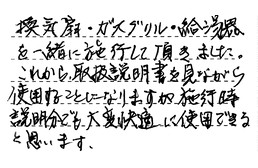 換気扇・ガスグリル・給湯器
を一緒に施行して頂きました。
これから、取扱説明書を見ながら
使用することになりますが、施行時
説明分でも大変快適に使用できる
と思います。